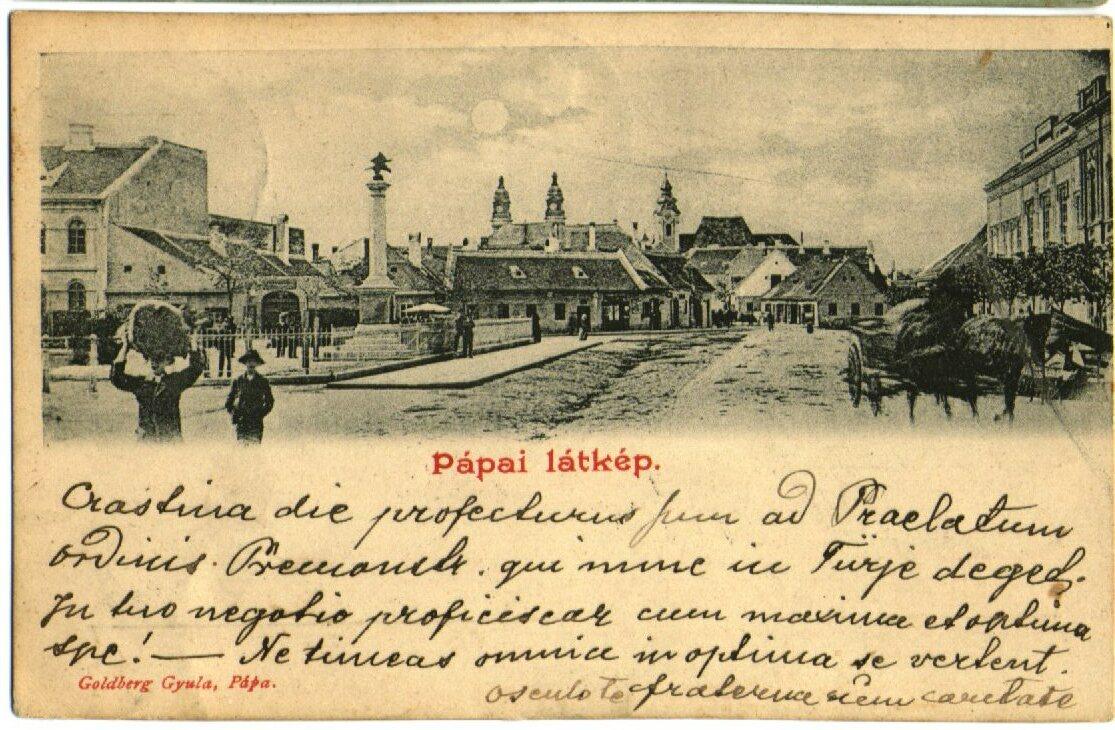 Pápai látkép.
Crastina die profecturus sum ad Praelatum
ordinis. Premonstr. qui nunc in Türje deget.
In tuo negotio proficiscar cum maxima et optima
spe! — Ne timeas omnia in optima se vertent.
Goldberg Gyula, Pápa.
osculo te fraterna
caritate